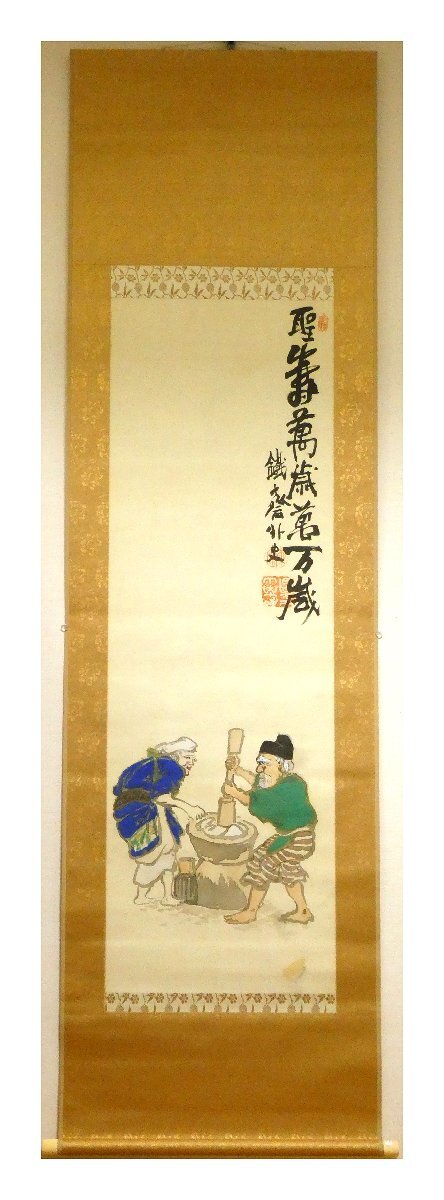 聖壽萬歳萬万歳
鐵斎外史